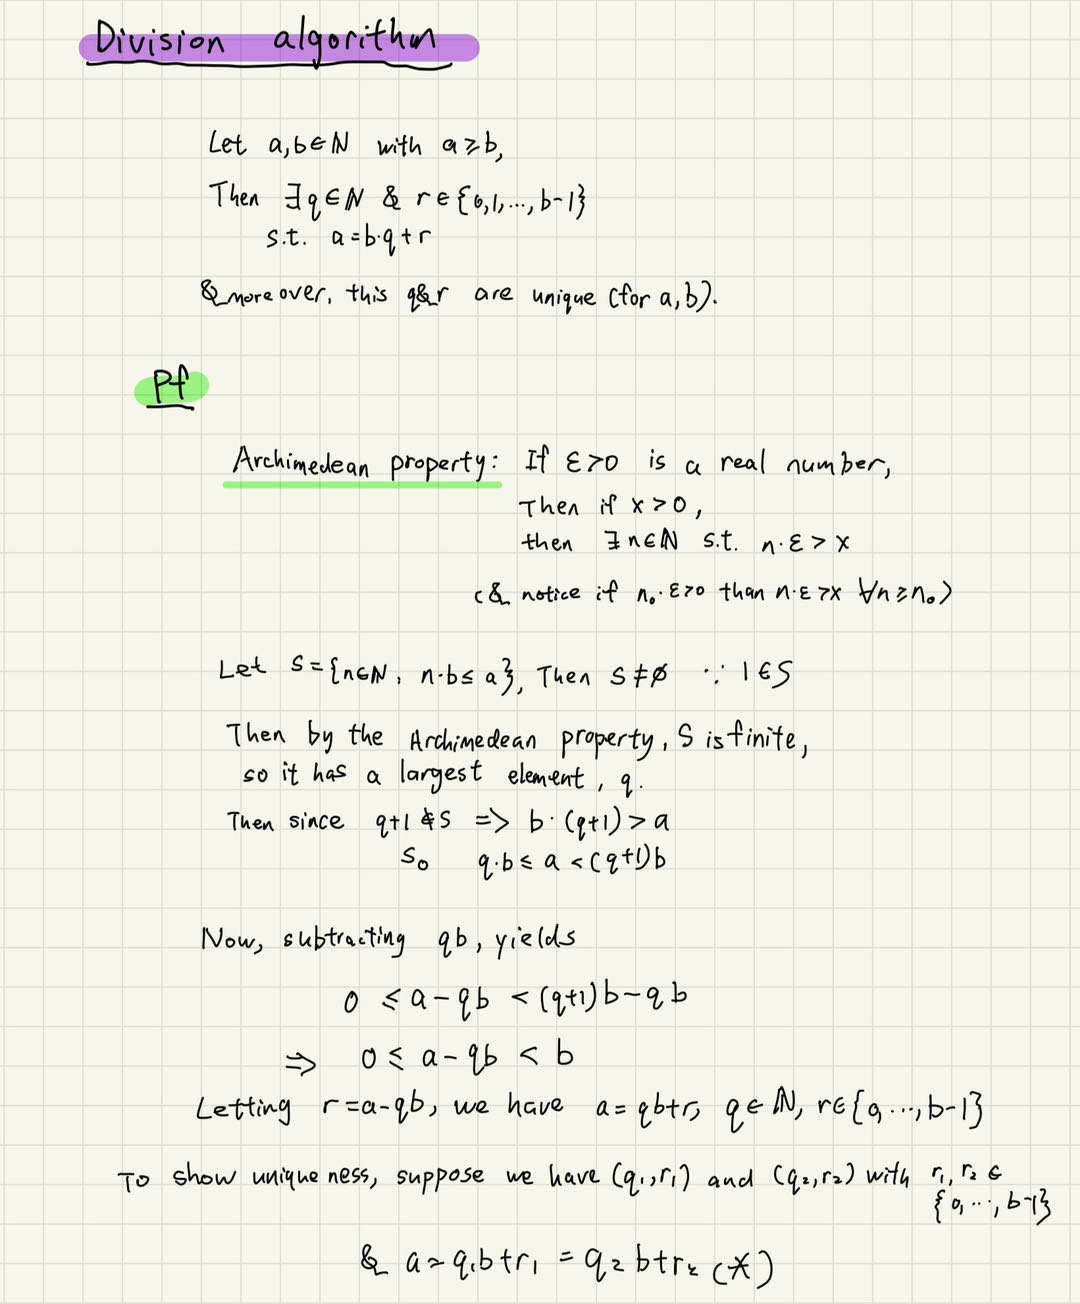 Division algorithm
Let a,b∈ℕ with a≥b,
Then ∃q∈ℕ & r∈{0,1,...,b-1}
s.t. a=b·q+r
& moreover, this q&r are unique (for a,b).
Pf
Archimedean property: If ε>0 is a real number,
Then if x>0,
then ∃n∈ℕ s.t. n·ε>x
(& notice if n₀·ε>0 than n·ε>x ∀n≥n₀)
Let S={n∈ℕ, n·b≤a}, Then S≠∅ ∵ 1∈S
Then by the Archimedean property, S is finite,
so it has a largest element, q.
Then since q+1∉S => b·(q+1)>a
So q·b≤a<(q+1)b
Now, subtracting qb, yields
0≤a-qb<(q+1)b-qb
⇒ 0≤a-qb<b
Letting r=a-qb, we have a=qb+r, q∈ℕ, r∈{0,...,b-1}
To show uniqueness, suppose we have (q₁,r₁) and (q₂,r₂) with r₁,r₂∈
{0,...,b-1}
& a=q₁b+r₁=q₂b+r₂ (*)